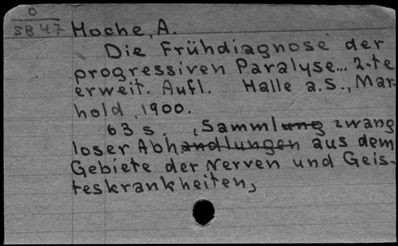 O
5847 Hoche, A.
Die Frühdiagnose der
progressiven Paralyse... 2-te
erweit. Aufl. Halle a.S., Mar-
hold, 1900.
63 s. „Sammlung zwang
loser Abhandlungen aus dem
Gebiete der Nerven und Geis-
teskrankheiten„